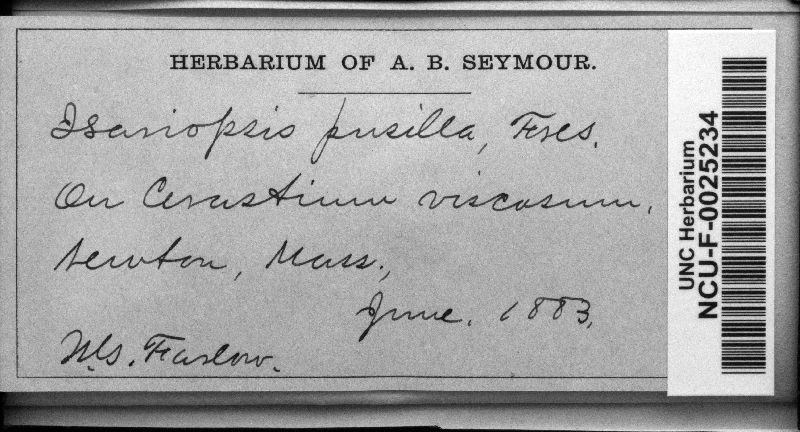 HERBARIUM OF A. B. SEYMOUR.
Isariopsis pusilla, Fres.
On Cerastium viscosum,
Newton, Mass.,
June. 1883.
W.G. Farlow.
UNC Herbarium
NCU-F-0025234